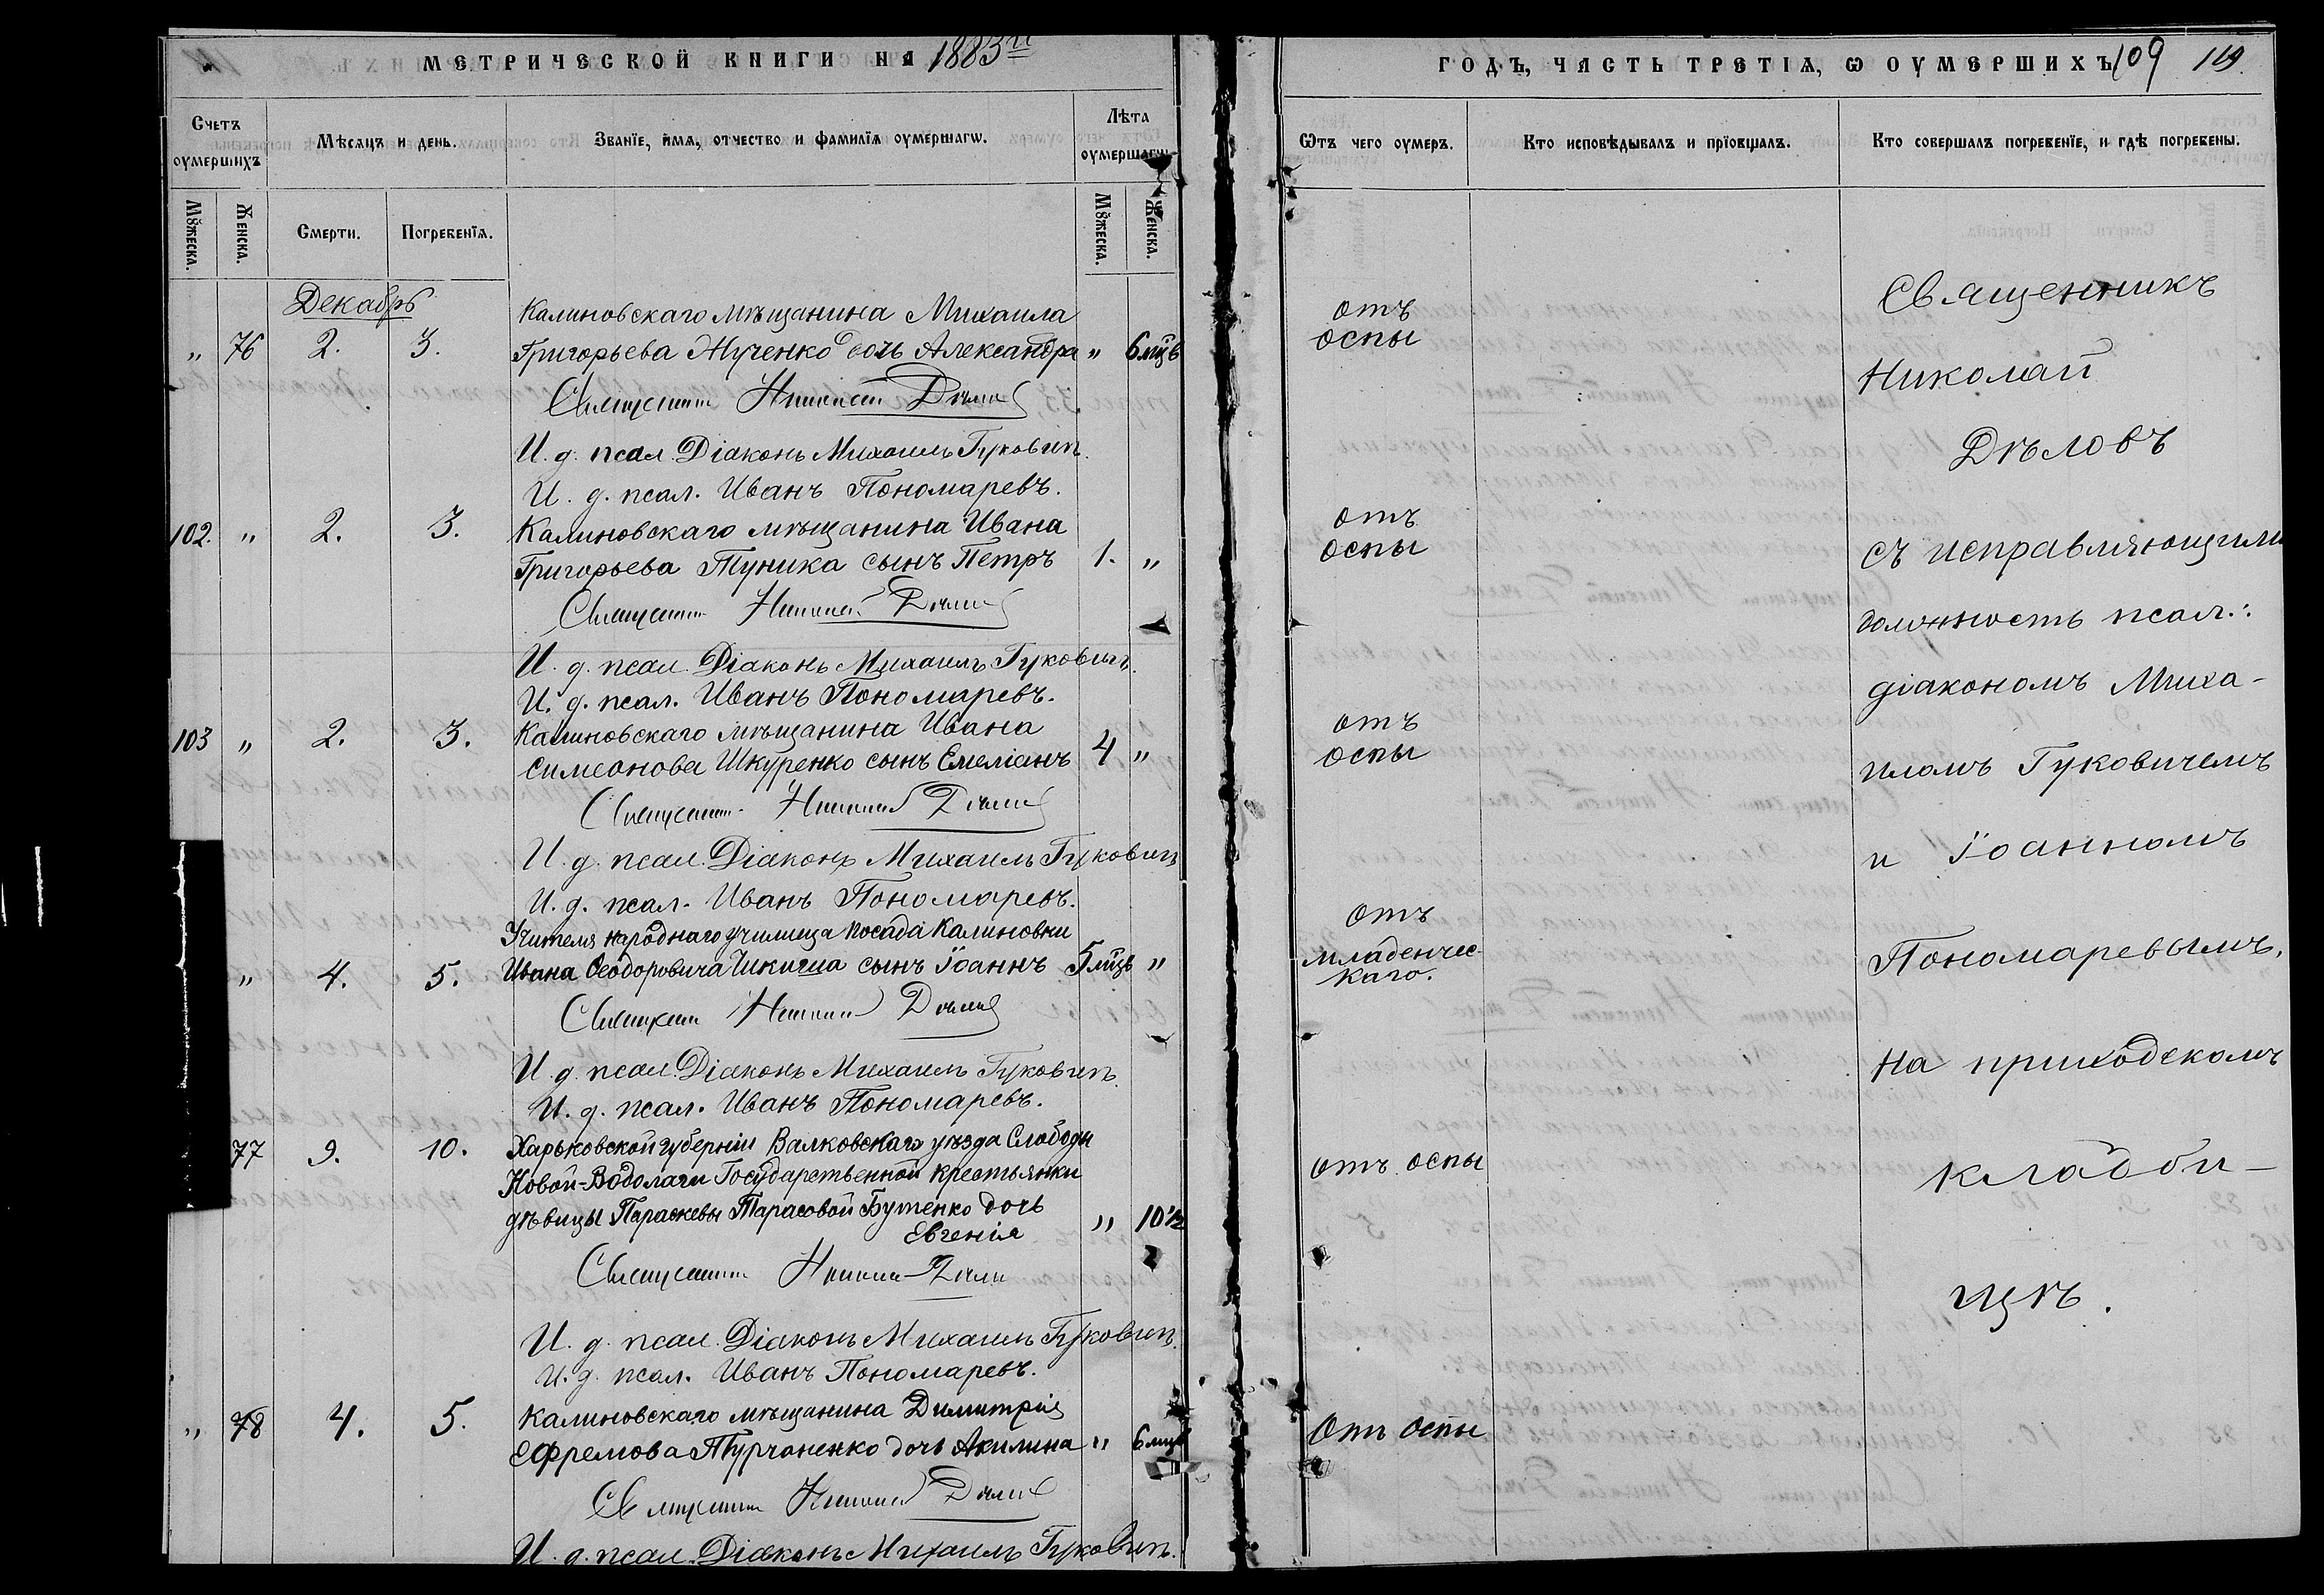 МЕТРИЧЕСКОЙ КНИГИ НА 1883й
ГОДЪ, ЧАСТЬ ТРЕТІѦ, Ѡ ОУМЕРШИХЪ 109 119.
Счетъ оумершихъ
Мѣсяцъ и день.
Званіе, имя, отчество и фамилія оумершагѡ.
Лѣта оумершагѡ
Ѿ чего оумеръ.
Кто исповѣдывалъ и пріобщалъ.
Кто совершалъ погребеніе, и гдѣ погребены.
Мꙋжеска.
Женска.
Смерти.
Погребенія.
Мꙋжеска.
Женска.
Декабрь
Калиновскаго мѣщанина Михаила
„ 76 2. 3. Григорьева Жученко дочь Александра „ 6 мцв
отъ
оспы
Священникъ Николай Дѣловъ
И. д. псал. Діаконъ Михаилъ Гуковичъ.
И. д. псал. Иванъ Пономаревъ.
102. „ 2. 3. Калиновскаго мѣщанина Ивана
Григорьева Туника сынъ Петръ 1. „
отъ
оспы
Священникъ Николай Дѣловъ
И. д. псал. Діаконъ Михаилъ Гуковичъ.
И. д. псал. Иванъ Пономаревъ.
103 „ 2. 3. Калиновскаго мѣщанина Ивана
Симеонова Шкуренко сынъ Емеліанъ 4 „
отъ
оспы
Священникъ Николай Дѣловъ
И. д. псал. Діаконъ Михаилъ Гуковичъ
И. д. псал. Иванъ Пономаревъ.
Учителя народнаго училища посада Калиновки
„ 4. 5. Ивана Ѳеодоровича сынъ Іоаннъ 5 мцв „
Отъ
младенчес-
каго.
Священникъ Николай Дѣловъ
И. д. псал. Діаконъ Михаилъ Гуковичъ.
И. д. псал. Иванъ Пономаревъ.
77 9. 10. Харьковской губерніи Валковскаго уѣзда Слободы
Новой-Водолаги Государственной крестьянки
дѣвицы Параскевы Тарасовой Бутенко дочь
Евгенія „ 10 ½
отъ оспы
Священникъ Николай Дѣловъ
И. д. псал. Діаконъ Михаилъ Гуковичъ.
И. д. псал. Иванъ Пономаревъ.
„ 78 4. 5. Калиновскаго мѣщанина Димитрія
Ефремова Турчаненко дочь Акилина „ 6 мцв
Отъ оспы
Священникъ Николай Дѣловъ
И. д. псал. Діаконъ Михаилъ Гуковичъ.
Священникъ
Николай
Дѣловъ
съ исправляющими
должность псал.:
діакономъ Миха-
иломъ Гуковичемъ
и Іоанномъ
Пономаревымъ,
на приходскомъ
кладби-
щѣ.